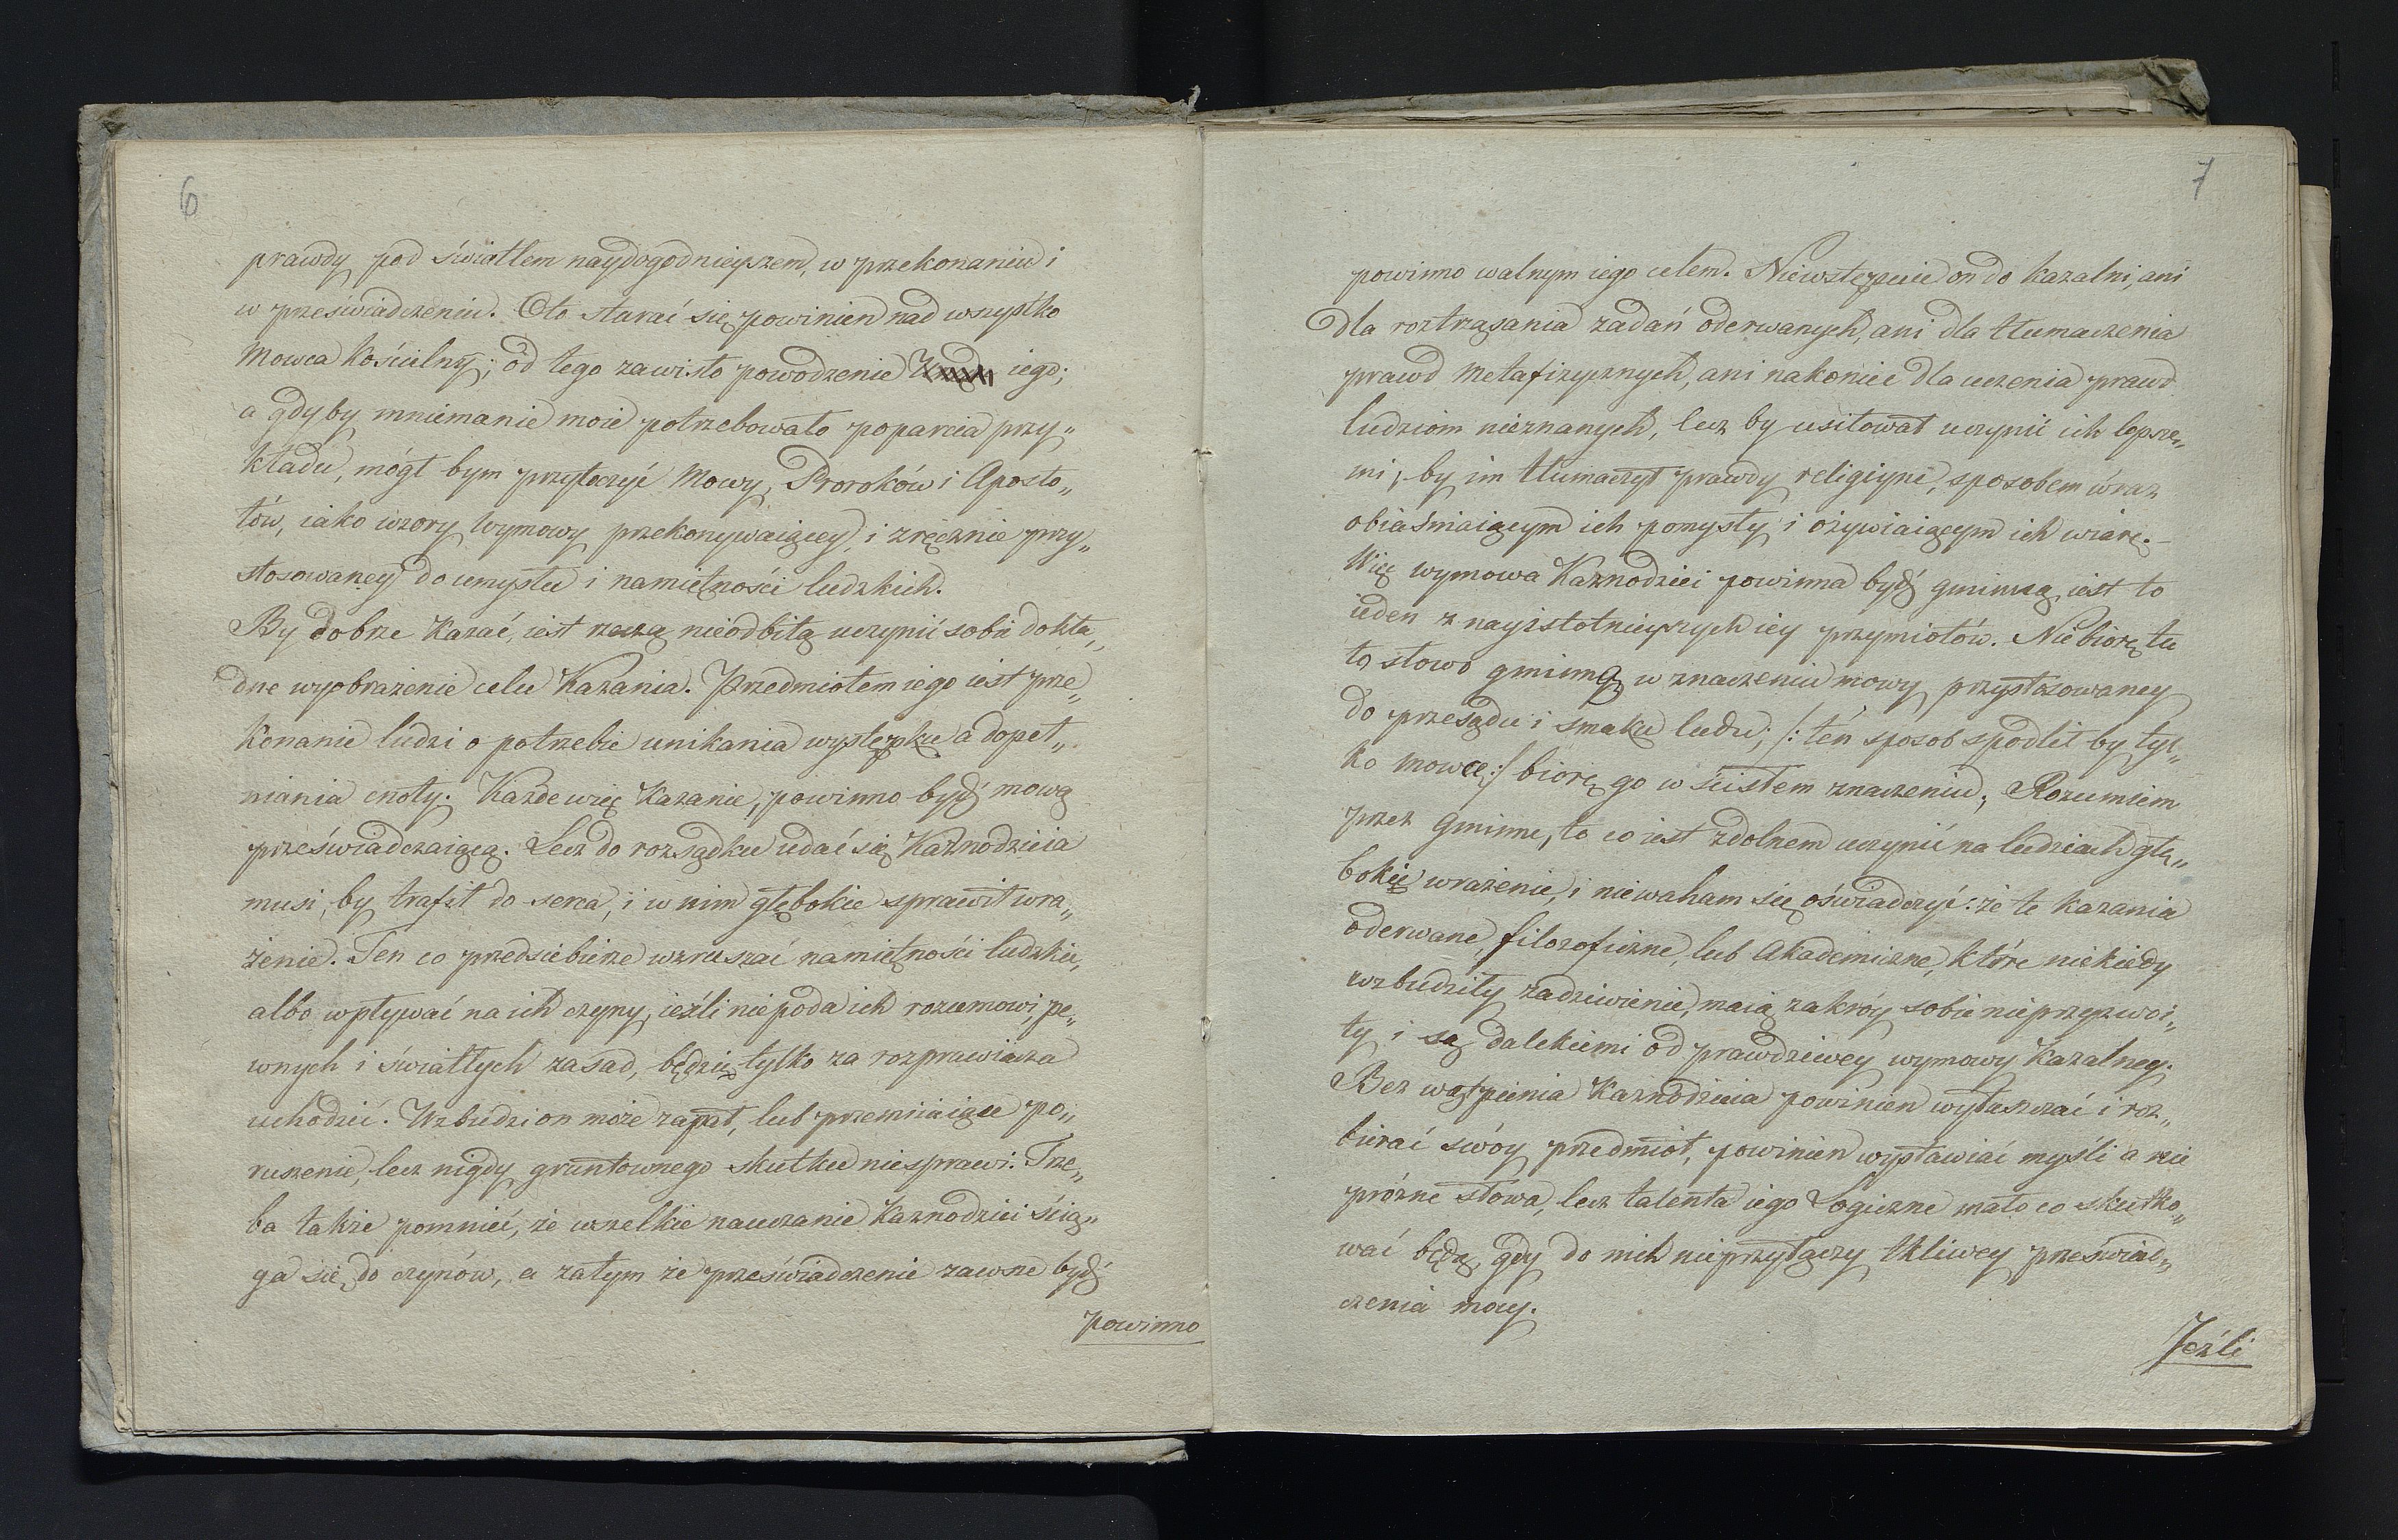 6
prawdy pod światłem naydogodnieyszem, w przekonaniu i
w przeswiadczeniu. Oto starać się powinien nad wszystko
Mowca Kościelny; od tego zawisło powodzenie iego;
a gdyby mniemanie moie potrzebowało poparcia przy„
kładu, mógł bym przytoczyć Mowy, Proroków i Aposto„
łów, iako wzory Wymowy przekonywaiącey, i zręcznie przy„
stosowaney do umysłu i namiętności ludzkich.
By dobrze Kazać, iest rzeczą nieodbitą uczynić sobie dokła„
dne wyobrażenie celu Kazania. Przedmiotem iego iest prze„
Konanie ludzi o potrzebie unikania występku a dopeł„
niania cnoty. Kazde więc Kazanie, powinno bydź mową
przeświadczaiącą. Lecz do rozsądku udać się Kaznodzieia
musi, by trafił do serca, i w nim głębokie sprawił wra„
żenie. Ten co przedsiebierze wzruszać namiętności ludzkie,
albo wpływać na ich czyny, ieźli nie poda ich rozumowi pe„
wnych i światłych zasad, będzie tylko za rozprawiacza
uchodzić. Wzbudzi on może zapał, lub przemiiaiące po„
ruszenie, lecz nigdy gruntownego skutku nie sprawi. Trze„
ba także pomnieć, że wszelkie nauczanie Kaznodziei ścią„
ga się do czynów, a zatym że przeświadczenie zawsze bydź
powinno
7
powinno walnym iego celem. Niewstępuie on do kazalni, ani
dla roztrząsania zadań oderwanych, ani dla tłumaczenia
prawd Metafizycznych, ani nakoniec dla uczenia prawd
ludziom nieznanych, lecz by usiłował uczynić ich lepsze„
mi, by im tłumaczył prawdy religiyne, sposobem wraz
obiaśniaiącym ich pomysły i ożywiaiącym ich wiarę. –
Więc wymowa Kaznodziei powinna bydź gminną, iest to
ieden z nayistotnieyszych iey przymiotów. Nie biorę tu
to słowo gminną w znaczeniu mowy przystosowaney
do przesądu i smaku ludu; /: ten sposob spodlił by tyl„
ko mowcę :/ biorę go w ścisłem znaczeniu; Rozumiem
przez Gminne, to co iest zdolnem uczynić na ludziach głę„
bokie wrażenie, i niewaham się oświadczyć: że te kazania
oderwane, filozoficzne, lub Akademiczne, które niekiedy
wzbudziły zadziwienie, maią zakróy sobie nieprzyzwoi„
ty, i są dalekiemi od prawdziwey wymowy Kazalney.
Bez wątpienia Kaznodzieia powinien wyłuszczać i roz„
bierać swóy przedmiot, powinien wystawiać myśli a nie
próżne słowa, lecz talenta iego Logiczne mało co skutko„
wać będą, gdy do nich nieprzyłączy tkliwey przeświad„
czenia mocy.
Jeźli